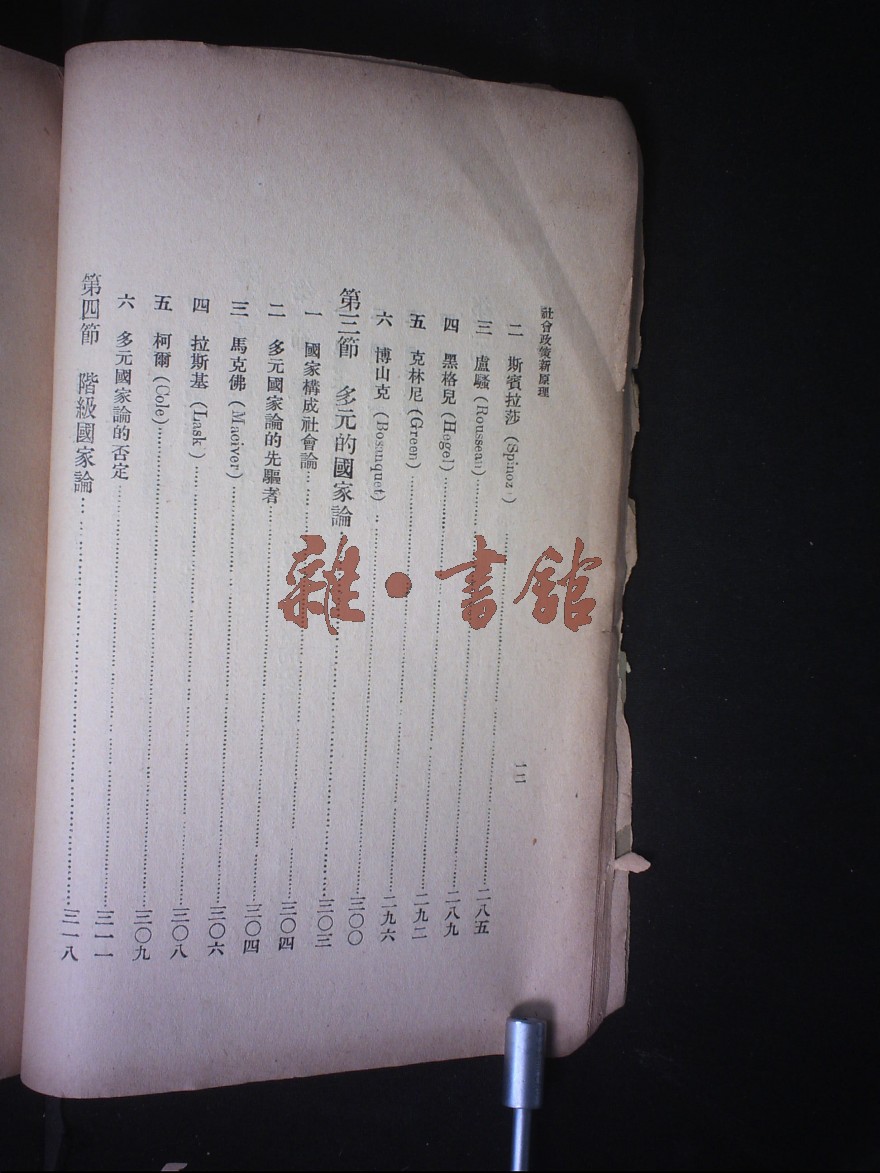 社會政策新原理
一二
二 斯賓拉莎 (Spinoz ) …… 二八五
三 盧騷 (Rousseau) …… 二八九
四 黑格兒 (Hegel) …… 二九二
五 克林尼 (Green) …… 二九六
六 博山克 (Bosanquet) …… 三〇〇
第三節 多元的國家論 …… 三〇三
一 國家構成社會論 …… 三〇四
二 多元國家論的先驅者 …… 三〇四
三 馬克佛 (Maciver) …… 三〇六
四 拉斯基 (Lask ) …… 三〇八
五 柯爾 (Cole) …… 三〇九
六 多元國家論的否定 …… 三一一
第四節 階級國家論 …… 三一八
雜·書館